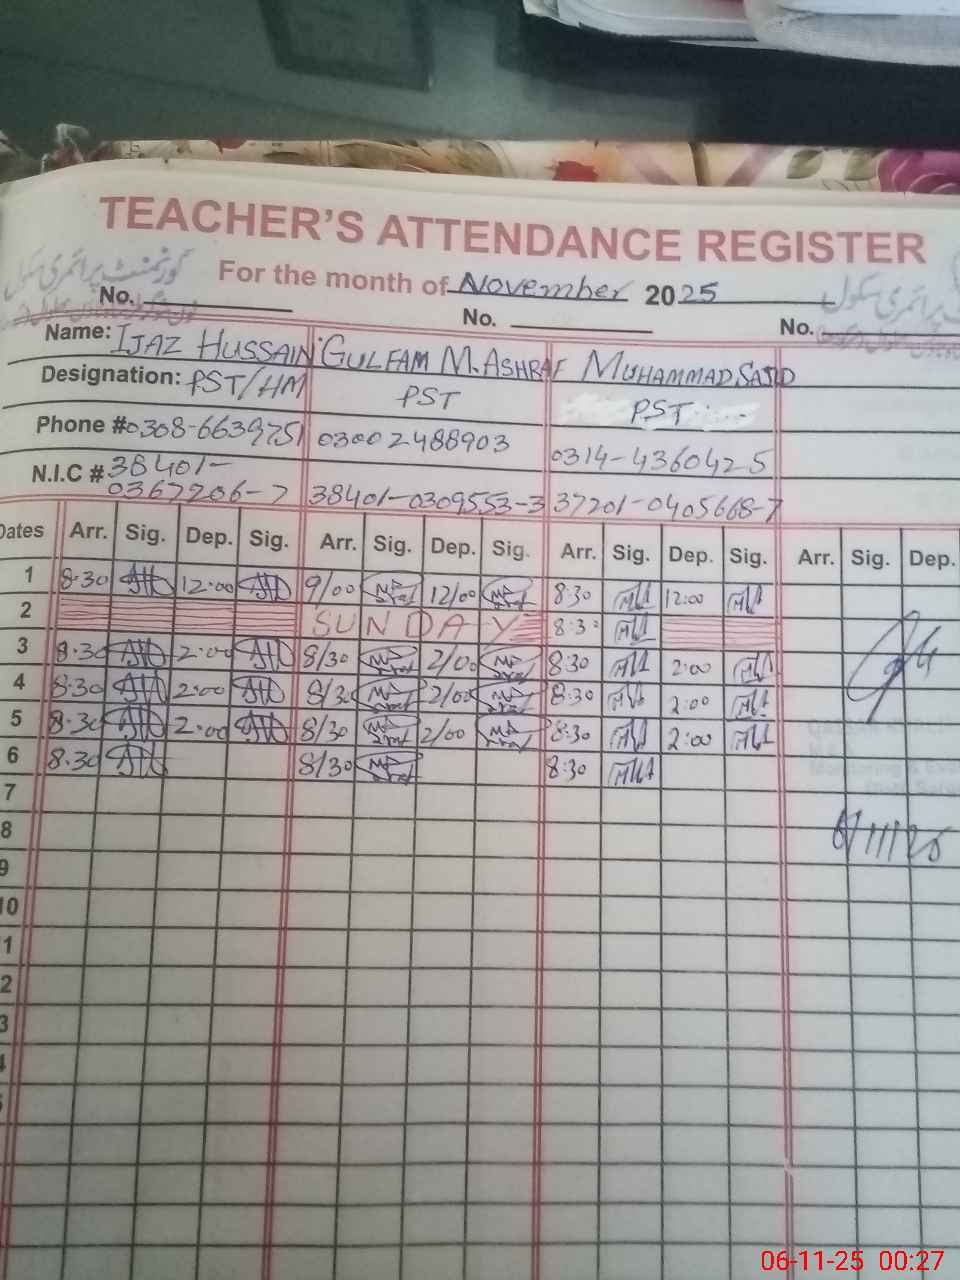 TEACHER'S ATTENDANCE REGISTER
گورنمنٹ پرائمری سکول
پرائمری سکول
For the month of November 2025
No. No. No.
Name: IJAZ HUSSAIN GULFAM M. ASHRAF MUHAMMAD SAJID
Designation: PST/HM PST PST
Phone # 0308-6639751 03002488903 0314-4360425
N.I.C # 38401-0367206-7 38401-0309553-3 37201-0405668-7
Dates Arr. Sig. Dep. Sig. Arr. Sig. Dep. Sig. Arr. Sig. Dep. Sig. Arr. Sig. Dep.
1 8.30 12:00 9/00 12/00 8:30 12:00
2 SUNDAY 8:3
3 8.30 2:00 8/30 2/00 8:30 2:00
4 8:30 2:00 8/30 2/00 8:30 2:00
5 8:30 2:00 8/30 2/00 8:30 2:00
6 8.30 8/30 8:30
7
8
6/11/25
9
10
1
2
3
4
06-11-25 00:27